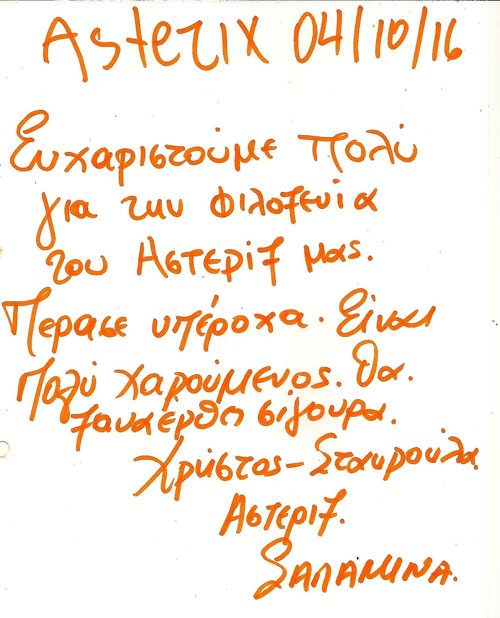 Asterix 04/10/16
Ευχαριστούμε πολύ
για την φιλοξενία
του Αστερίξ μας.
Περασε υπέροχα. Είναι
πολύ χαρούμενος. Θα.
ξαναέρθη σίγουρα.
Χρήστος - Σταυρούλα
Αστεριξ.
ΣΑΛΑΜΙΝΑ.